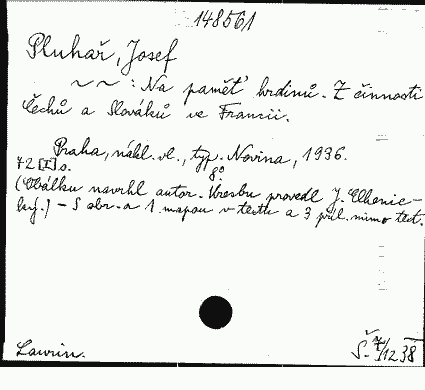 148561
Pluhař, Josef
~ ~ : Na paměť hrdinů. Z činnosti
Čechů a Slováků ve Francii.
Praha, nákl. vl., typ. Novina, 1936.
72 [I] s. 8°
(Obálku navrhl autor. Kresbu provedl J. Elhenic-
ký.) - S obr. a 1 mapou v textu a 3 příl. mimo text.
Lawrin. Š. 12 38